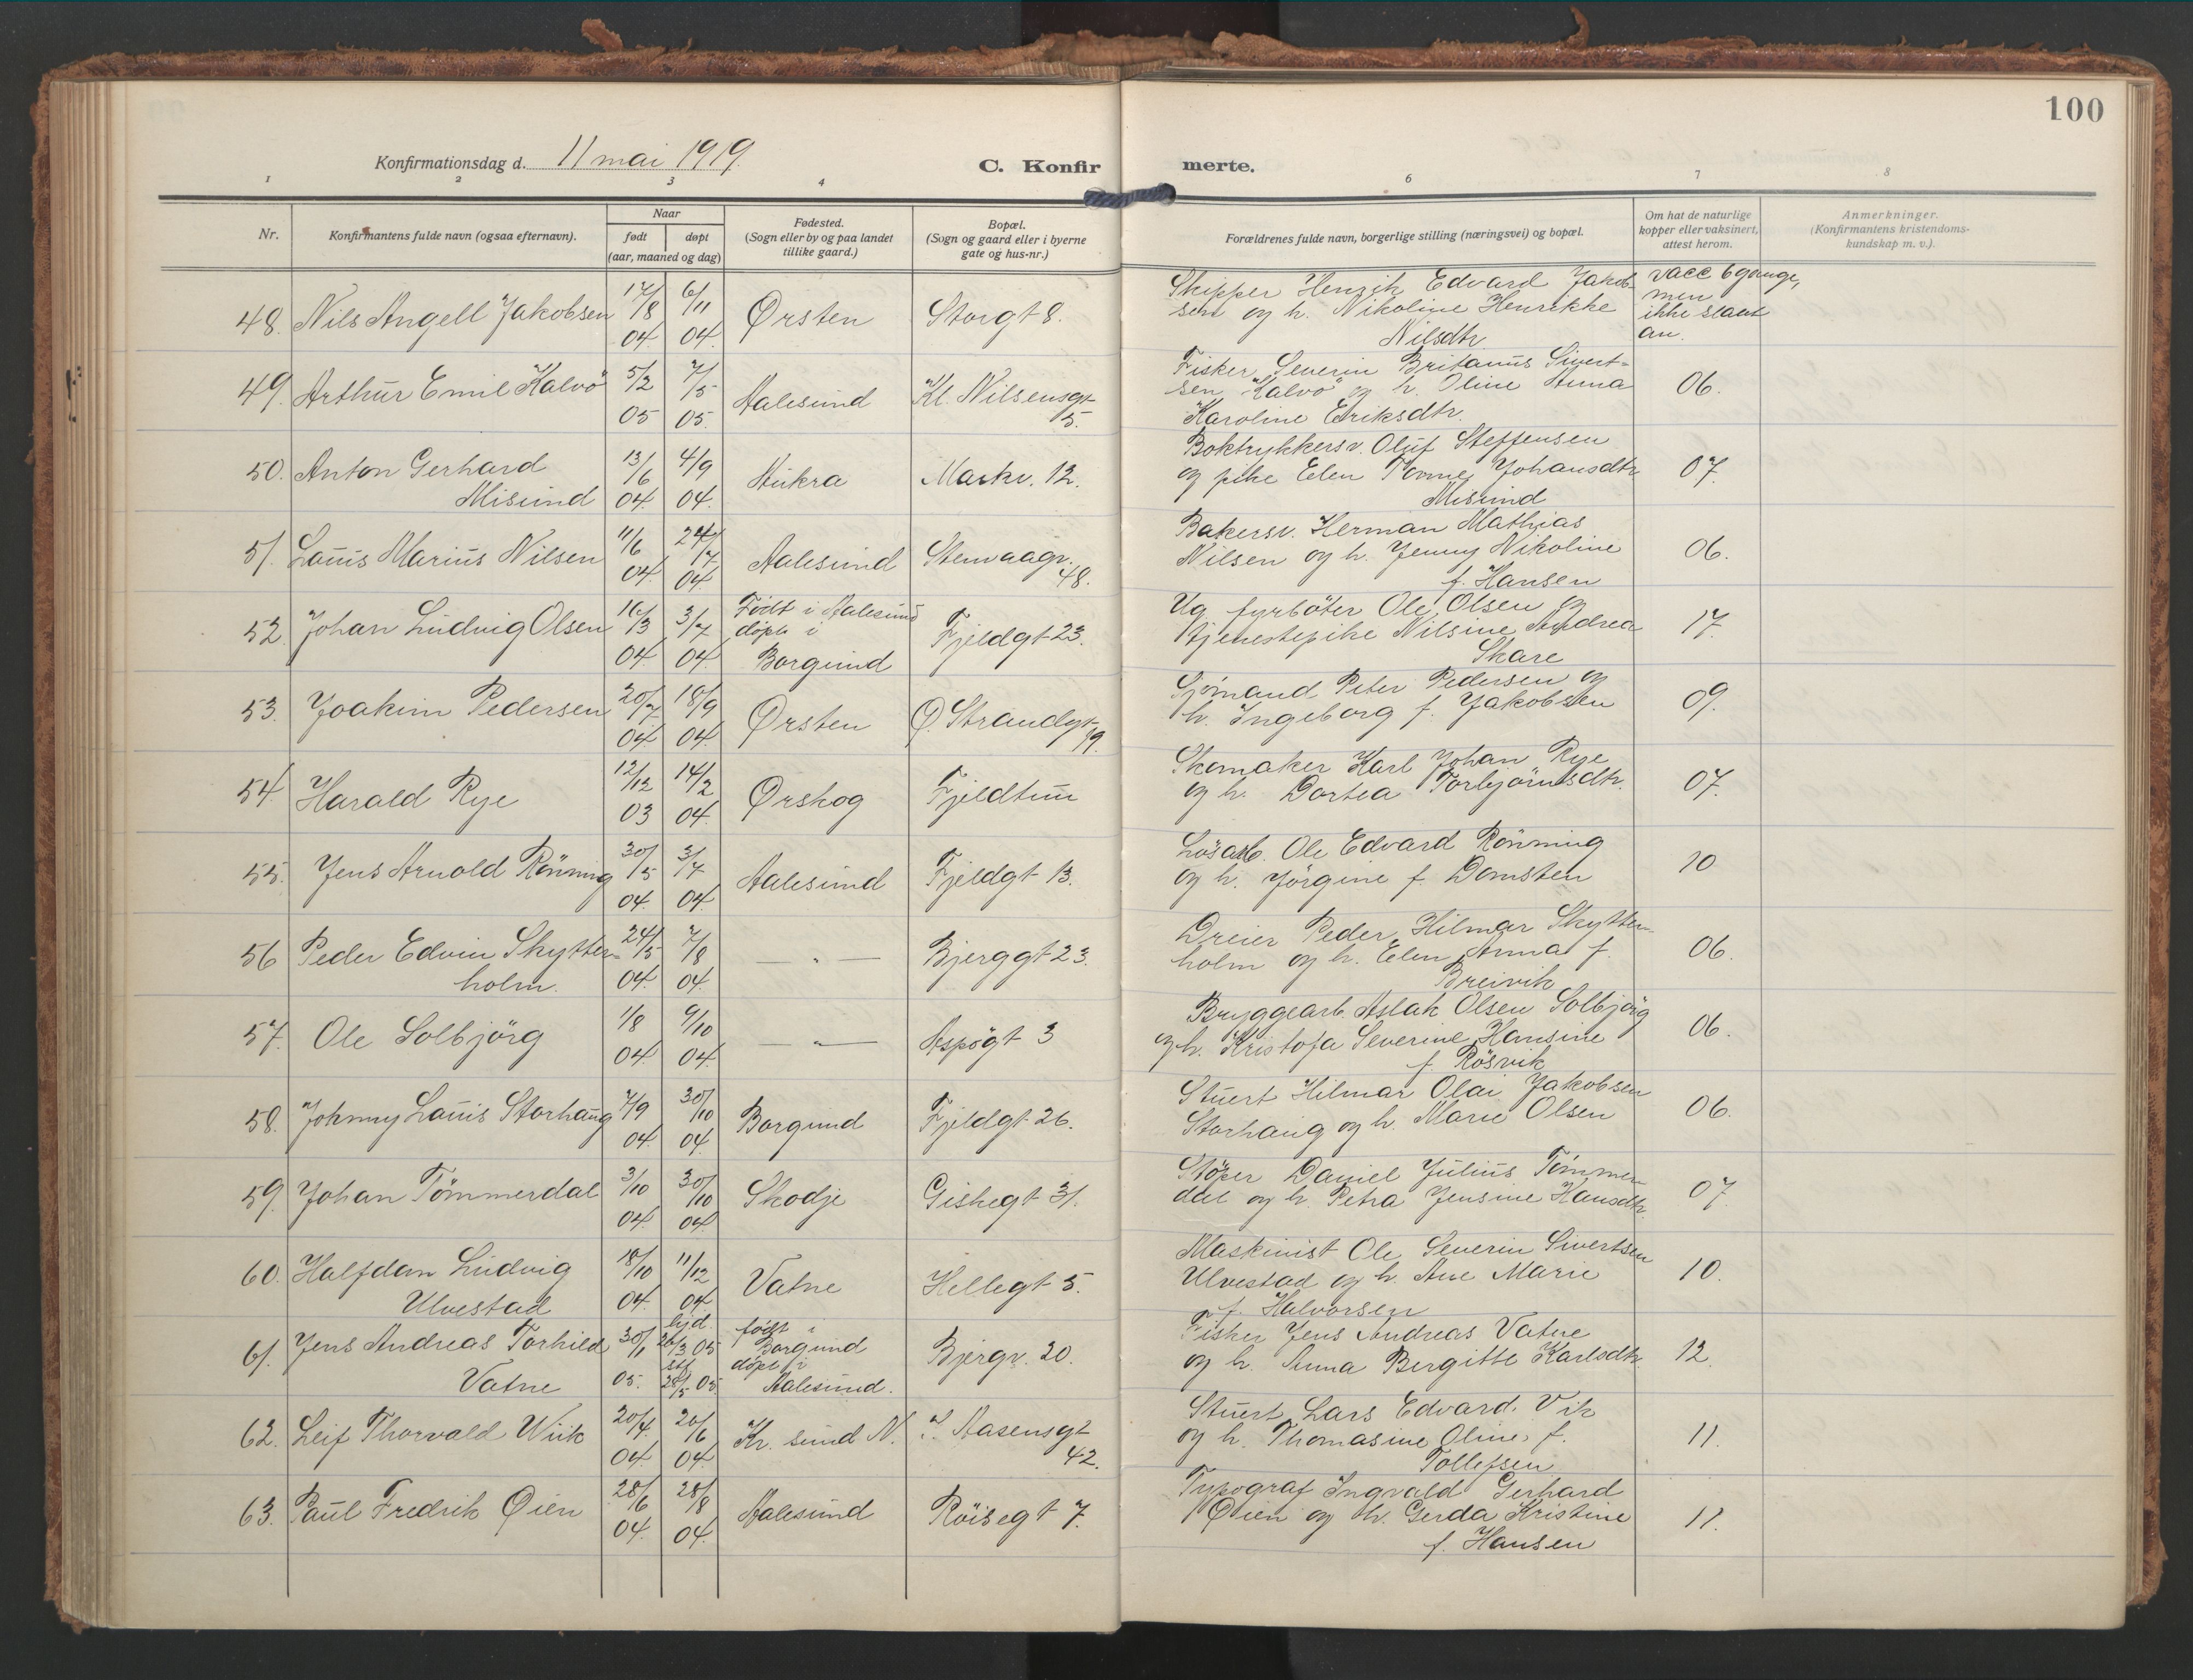 100
Konfirmationsdag d. 11 mai 1919. C. Konfirmerte.
1 2 3 4 6 7 8
Nr. Konfirmantens fulde navn (ogsaa efternavn). Naar født døpt (aar, maaned og dag) Fødested. (Sogn eller by og paa landet tillike gaard.) Bopæl. (Sogn og gaard eller i byerne gate og hus-nr.) Forældrenes fulde navn, borgerlige stilling (næringsvei) og bopæl. Om hat de naturlige kopper eller vaksinert, attest herom. Anmerkninger. (Konfirmantens kristendoms-kundskap m. v.).
48. Nils Angell Jakobsen 17/8 04 6/11 04. Ørsten Storgt 8. Skipper Henrik Edvard Jakobsen og h. Nikoline Henrikke Nilsdtr. vacc 6 gange, men ikke slaat an.
49. Arthur Emil Kalvö 5/2 05 7/5 05. Aalesund Kl. Nilsensgt 5. Fisker Severin Britanus Sivertsen "Kalvö" og h. Oline Anna Karoline Eriksdtr. 06.
50. Anton Gerhard Misund 13/6 04. 4/9 04. Aukra Markv. 12. Boktrykkersv. Oluf Steffensen og pike Elen Johansdtr Misund 07.
51. Lauis Marius Nilsen 11/6 04. 24/7 04. Aalesund Stenvaagv. 48. Bakersv. Herman Mathias Nilsen og h. Jenny Nikoline f. Hansen 06.
52. Johan Ludvig Olsen 16/3 04 3/7 04. Födt i Aalesund döpt i Borgund Fjeldgt 23. Ug. fyrböter Ole Olsen og tjenestepike Nilsine Andrea Skare 17.
53. Joakim Pedersen 20/7 04 18/9 04. Ørsten Ø. Strandgt 19. Sjömand Peter Pedersen og h. Ingeborg f. Jakobsen 09.
54. Harald Rye 12/12 03 14/2 04. Ørskog Fjeldtun Skomaker Karl Johan Rye og h. Dortea Torbjörnsdtr. 07.
55. Jens Arnold Rönning 30/5 04. 3/7 04. Aalesund Fjeldgt 13. Lösarb. Ole Edvard Rönning og h. Jörgine f. Domsten 10
56 Peder Edvin Skytterholm. 24/5 04. 7/8 04. — " — Bjerggt 23. Dreier Peder Hilmar Skytterholm og h. Elen Anna f. Breivik 06.
57. Ole Solbjörg 1/8 04 9/10 04. — " — Aspögt 3 Bryggearb. Aslak Olsen Solbjörg og h. Kristofa Severine Hansine f. Rösvik 06.
58. Johnny Lauis Storhaug 7/9 04. 30/10 04. Borgund Fjeldgt 26. Stuert Hilmar Olai Jakobsen Storhaug og h. Marie Olsen 06.
59. Johan Tömmerdal 3/10 04. 30/10 04 Skodje Giskegt 31. Stöper Daniel Julius Tömmerdal og h. Petra Jensine Hansdtr. 07.
60. Halfdan Ludvig Ulvestad 18/10 04. 11/12 04. Vatne Hellegt 5. Maskinist Ole Severin Sivertsen Ulvestad og h. Ane Marie f. Halvorsen 10.
61. Jens Andreas Torhild Vatne 30/1 05. hjd. 26/3 05 stf 28/5 05. födt i Borgund döpt i Aalesund. Bjergv. 20. Fisker Jens Andreas Vatne og h. Anna Bergitte Karlsdtr. 12.
62. Leif Thorvald Wiik 20/4 04. 26/6 04. Kr. sund N. Aasensgt 42. Stuert Lars Edvard Vik og h. Thomasine Oline f. Tollefsen 11.
63. Paul Fredrik Øien 28/6 04. 28/8 04. Aalesund Röisegt 7. Typograf Ingvald Gerhard Øien og h. Gerda Kristine f. Hansen 11.